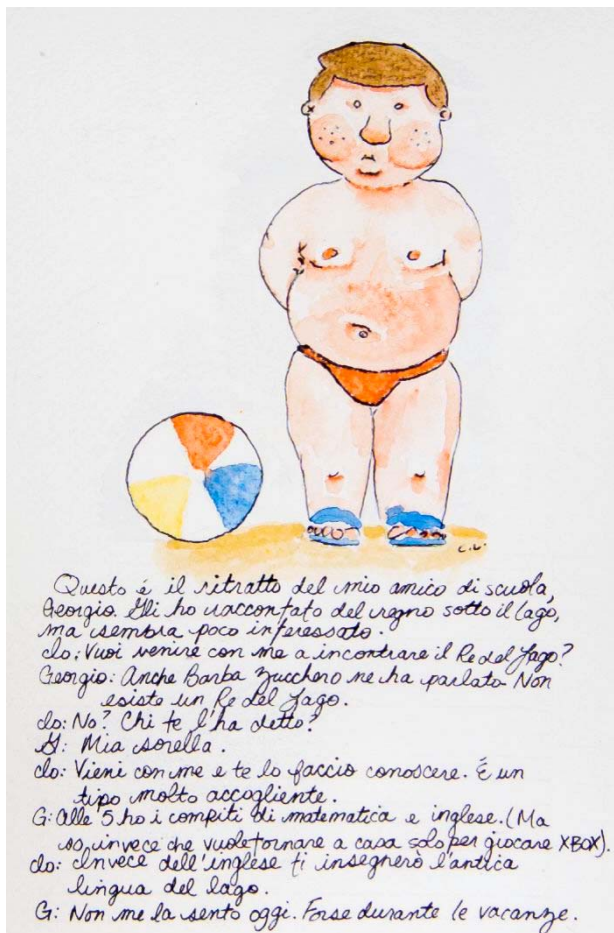 C.L.
Questo é il ritratto del mio amico di scuola,
Georgio. Gli ho raccontato del regno sotto il lago,
ma sembra poco interessato.
Io: Vuoi venire con me a incontrare il Re del Lago?
Georgio: Anche Barba Zucchero ne ha parlato Non
esiste un Re del Lago.
Io: No? Chi te l'ha detto?
G: Mia sorella.
Io: Vieni con me e te lo faccio conoscere. É un
tipo molto accogliente.
G: Alle 5 ho i compiti di matematica e inglese. (Ma
so, invece che vuole tornare a casa solo per giocare XBOX).
Io: Invece dell'inglese ti insegneró l'antica
lingua del lago.
G: Non me la sento oggi. Forse durante le vacanze.